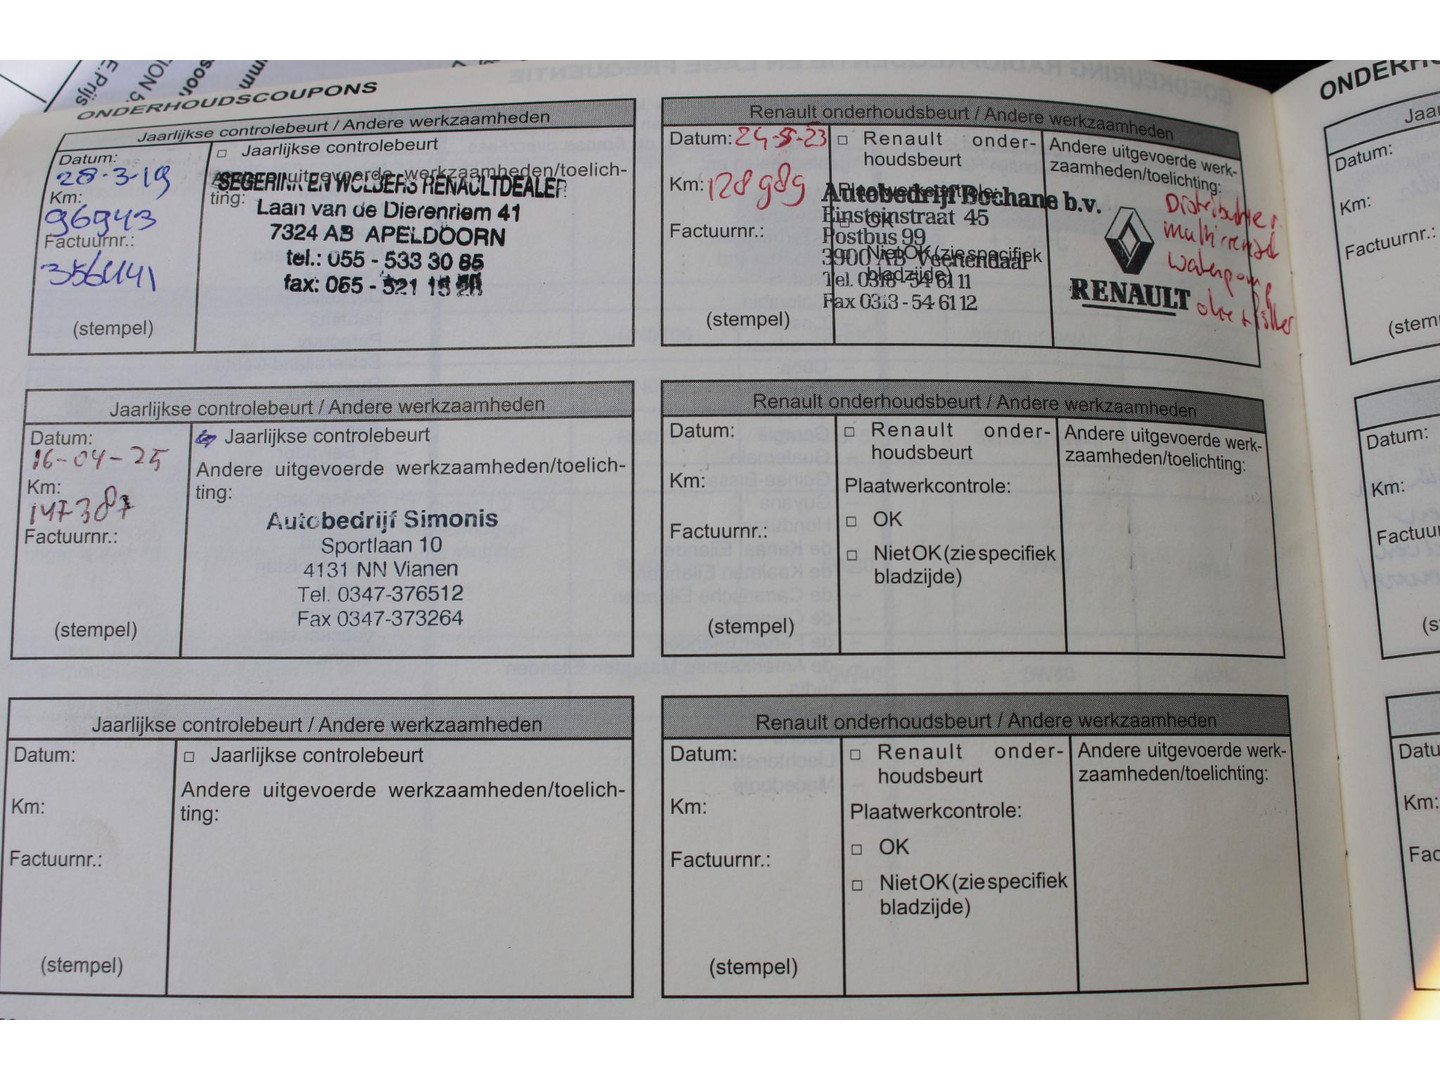 E.Prijs
ION 5
soon
mm
ONDERHOUDSCOUPONS
Jaarlijkse controlebeurt / Andere werkzaamheden
Datum:
28-3-19
Km:
96943
Factuurnr.:
356441
(stempel)
□ Jaarlijkse controlebeurt
Andere uitgevoerde werkzaamheden/toelich-
ting:
SEGERINK EN WOLBERS RENAULTDEALER
Laan van de Dierenriem 41
7324 AB APELDOORN
tel.: 055 - 533 30 85
fax: 055 - 521 15
Renault onderhoudsbeurt / Andere werkzaamheden
Datum: 24-5-23
Km: 128989
Factuurnr.:
(stempel)
□ Renault onder-
houdsbeurt
Plaatwerkcontrole:
OK
Niet OK (zie specifiek
bladzijde)
Autobedrijf Bochane b.v.
Einsteinstraat 45
Postbus 99
3900 AB Veenendaal
Tel. 0318 - 54 61 11
Fax 0318 - 54 61 12
RENAULT
Andere uitgevoerde werk-
zaamheden/toelichting:
Distributie r.
multiriem
waterpomp
olie + filter
Jaarlijkse controlebeurt / Andere werkzaamheden
Datum:
16-04-25
Km:
147387
Factuurnr.:
(stempel)
Jaarlijkse controlebeurt
Andere uitgevoerde werkzaamheden/toelich-
ting:
Autobedrijf Simonis
Sportlaan 10
4131 NN Vianen
Tel. 0347-376512
Fax 0347-373264
Renault onderhoudsbeurt / Andere werkzaamheden
Datum:
Km:
Factuurnr.:
(stempel)
□ Renault onder-
houdsbeurt
Plaatwerkcontrole:
□ OK
□ Niet OK (zie specifiek
bladzijde)
Andere uitgevoerde werk-
zaamheden/toelichting:
Jaarlijkse controlebeurt / Andere werkzaamheden
Datum:
Km:
Factuurnr.:
(stempel)
□ Jaarlijkse controlebeurt
Andere uitgevoerde werkzaamheden/toelich-
ting:
Renault onderhoudsbeurt / Andere werkzaamheden
Datum:
Km:
Factuurnr.:
(stempel)
□ Renault onder-
houdsbeurt
Plaatwerkcontrole:
□ OK
□ Niet OK (zie specifiek
bladzijde)
Andere uitgevoerde werk-
zaamheden/toelichting:
ONDERH
Jaar
Datum:
Km:
Factuurnr.:
(stem
Datum:
Km:
Factuu
(s
Datu
Km:
Fac